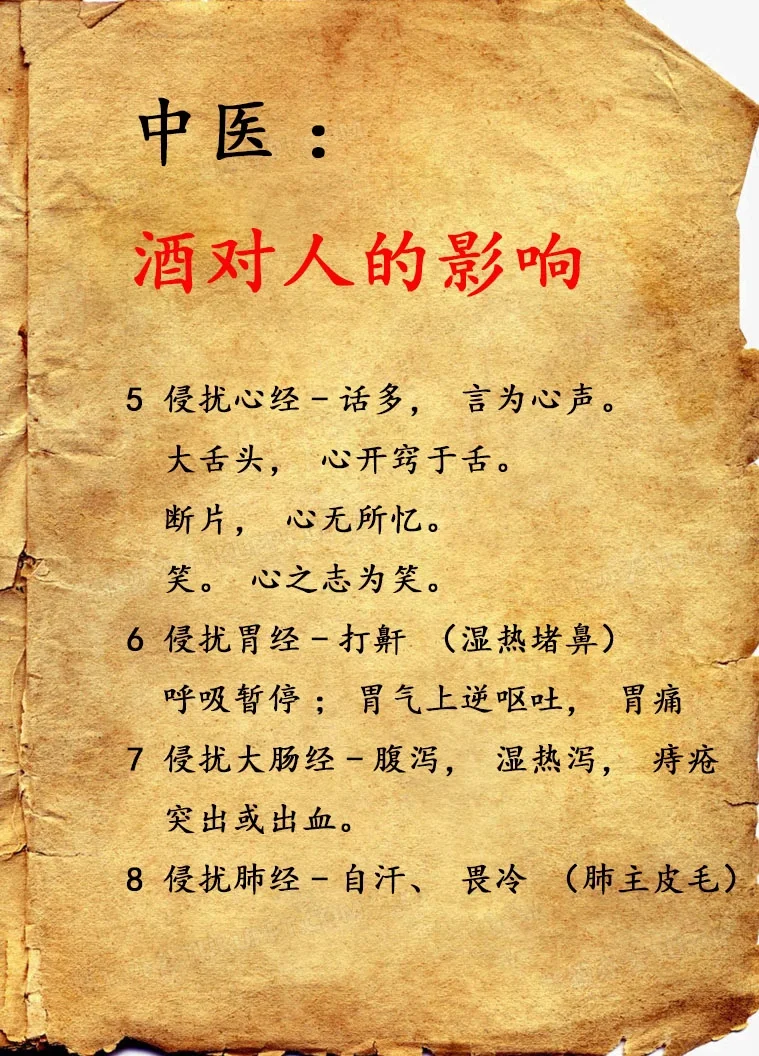 中医：
酒对人的影响
5 侵扰心经－话多， 言为心声。
大舌头， 心开窍于舌。
断片， 心无所忆。
笑。 心之志为笑。
6 侵扰胃经－打鼾 （湿热堵鼻）
呼吸暂停； 胃气上逆呕吐， 胃痛
7 侵扰大肠经－腹泻， 湿热泻， 痔疮
突出或出血。
8 侵扰肺经－自汗、 畏冷 （肺主皮毛）